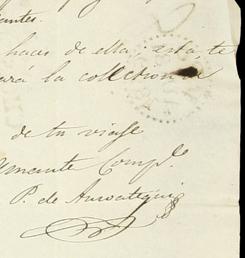 antes.
hacer de ella: está, te
ará la collection de
de tu viage
amante Comp.e
P. de Amoategui